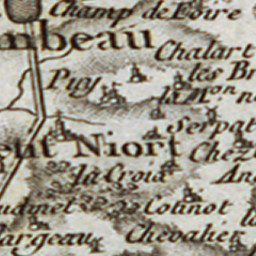 Champ de Foire
mbeau
Chalart
Puy
les Br
la M.on
Serpat
ent Niort
Chez
la Croix
An
Cotinot
largeau
Chevalier